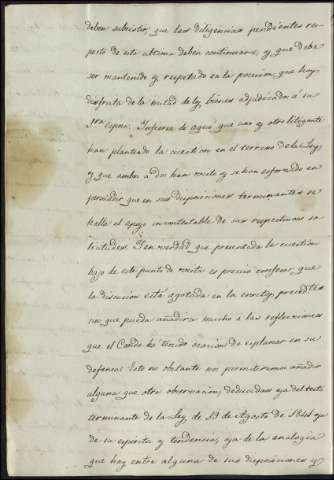 deben subsistir, que las diligencias pendientes res-
pecto de este ultimo deben continuarse, y, que debe
ser mantenido y respetado en la posesion, que hoy
disfruta de la mitad de los bienes adjudicados á su
Infierese de aquí que uno y otro litigante
han planteado la cuestion en el terreno de la Ley,
y que ambos á dos han visto y se han esforzado en
persuadir que en sus disposiciones terminantes se
halla el apoyo incontestable de sus respectivas so-
licitudes. Y en verdad que presentada la cuestion
bajo de este punto de vista es preciso confesar, que
la discusion está agotada en los escritos precedtes
sin que pueda añadirse mucho á las reflecciones
que el Conde ha tenido ocasion de esplanar en su
defensa. Esto no obstante nos permitiremos añadir
alguna que otra observacion, deducida ya del testo
terminante de la Ley de 19 de Agosto de 1841 ya
de su espiritu y tendencias, ya de la analogia
que hay entre alguna de sus disposiciones y